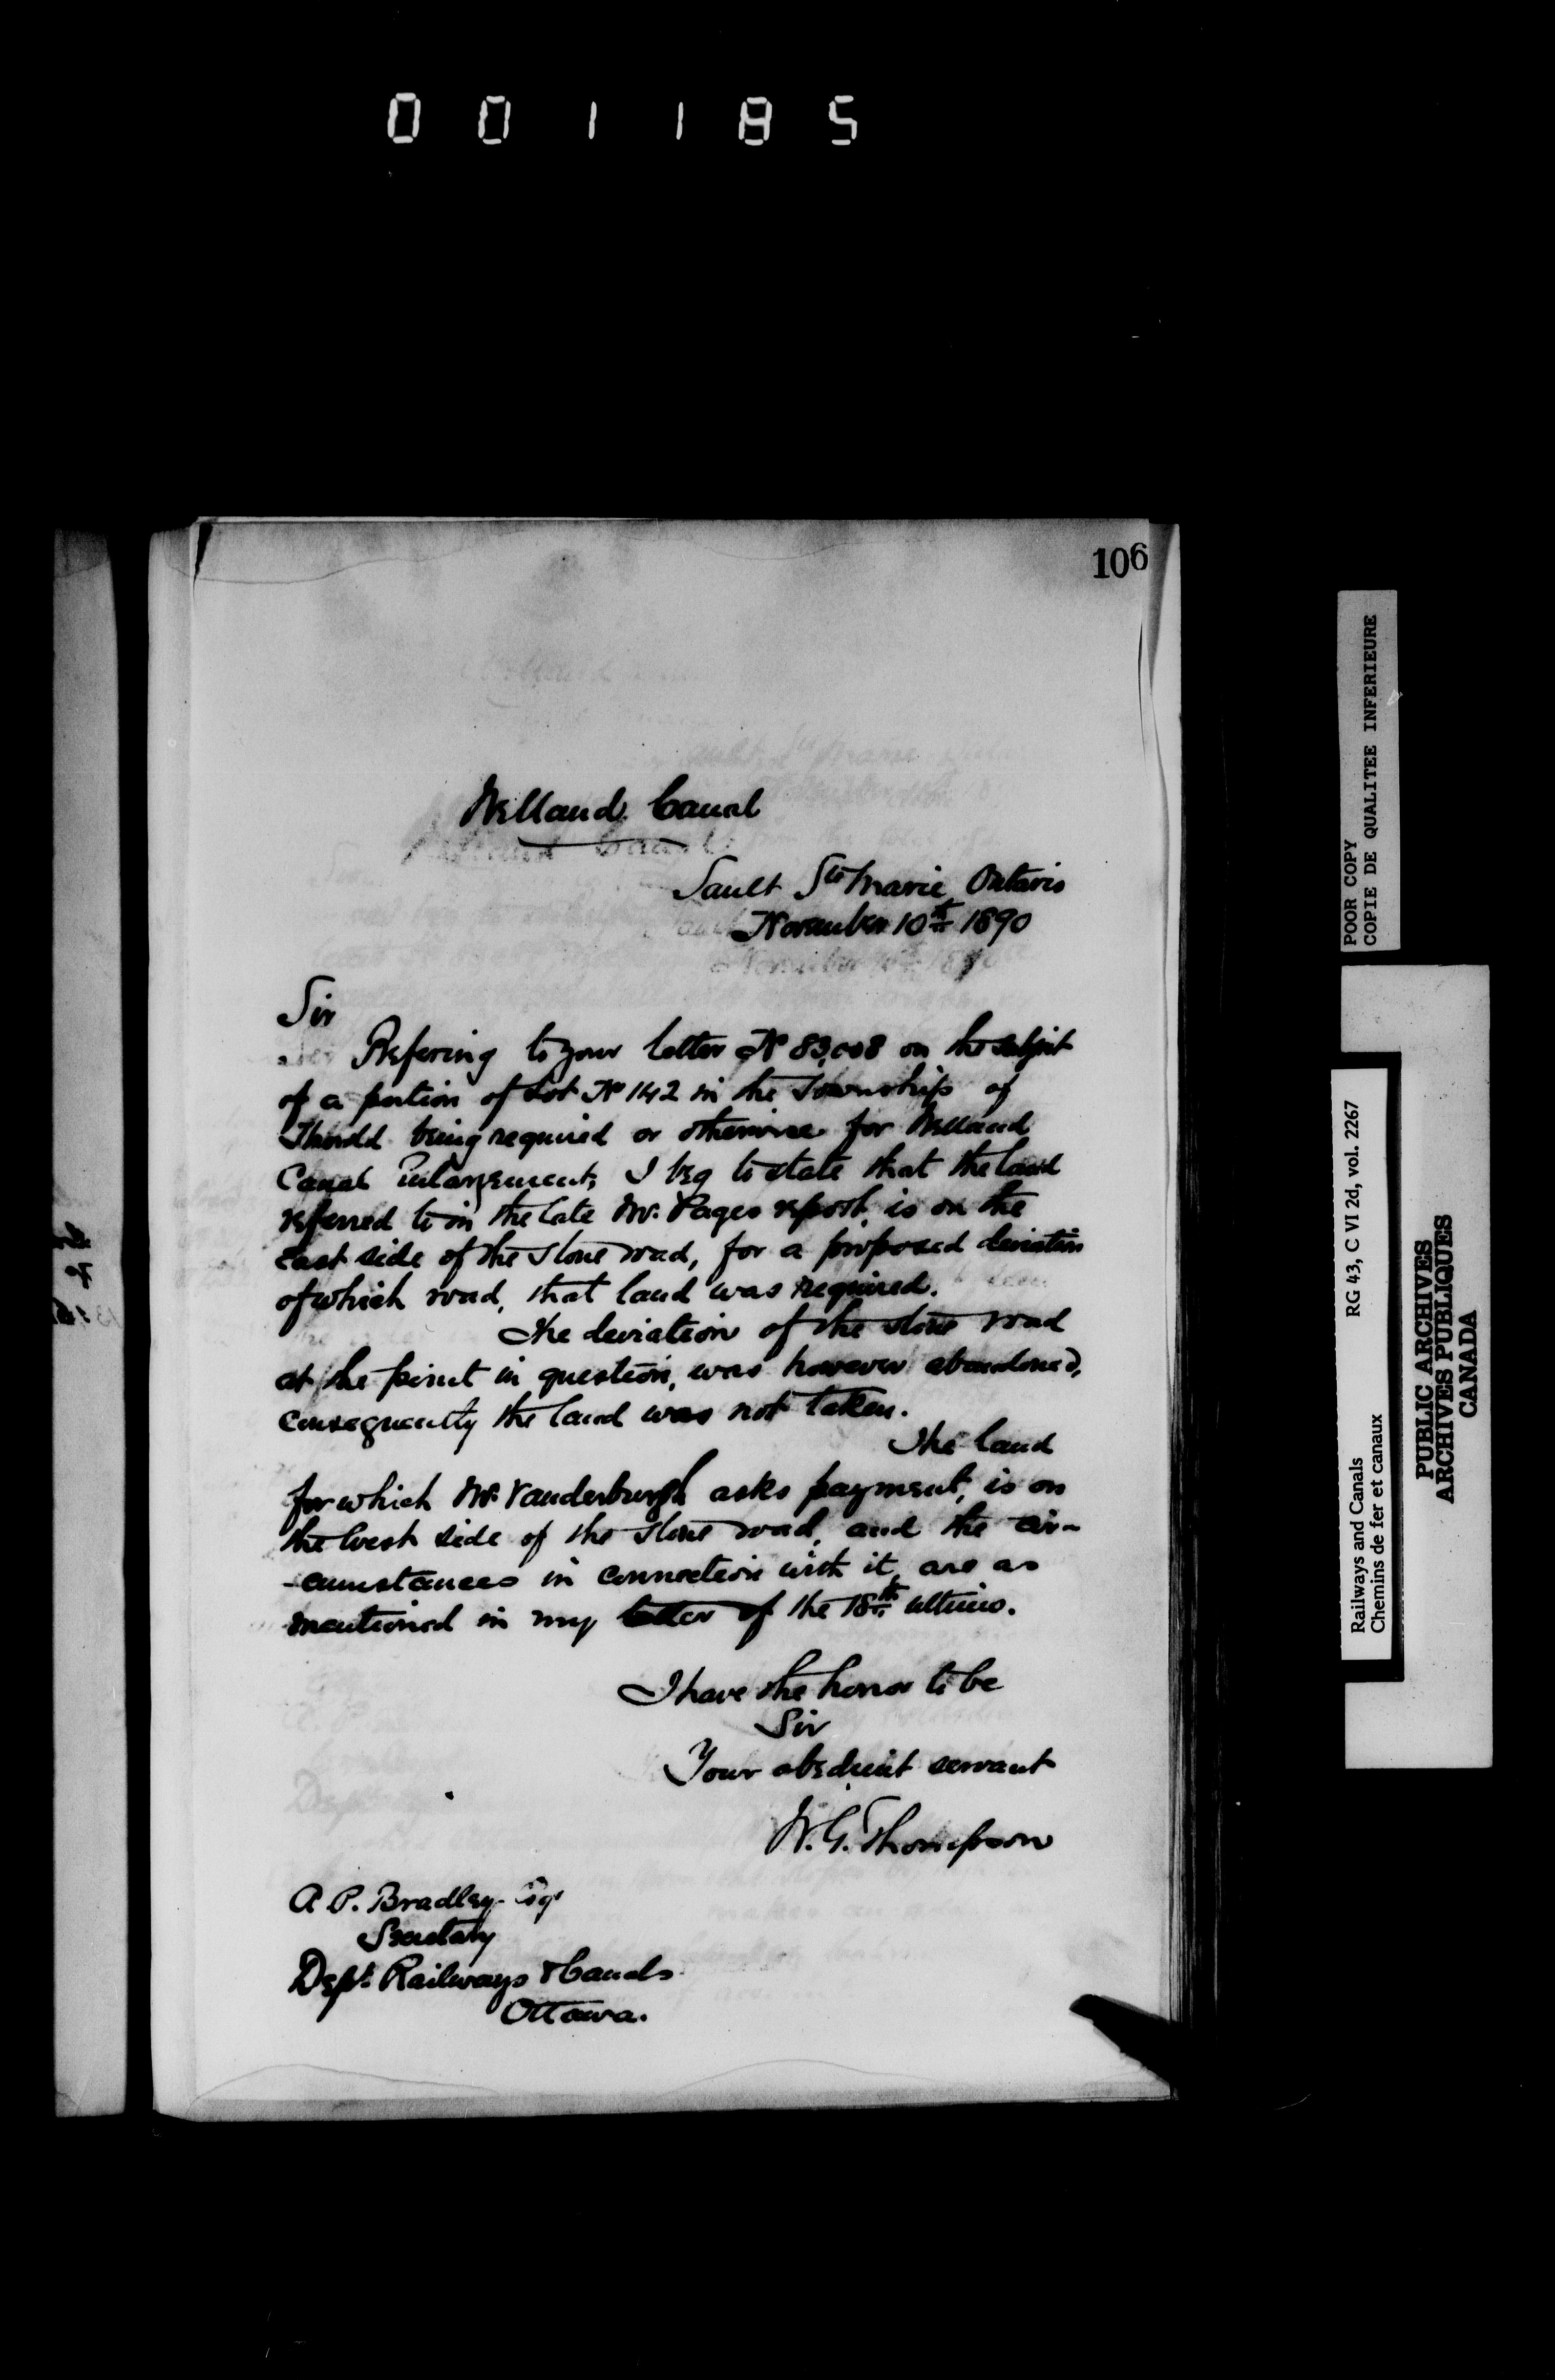 001185
106
Welland Canal
Sault Ste Marie Ontario
November 10th 1890
Sir
Refering to your letter No 83,008 on the subject
of a portion of Lot No 142 in the Township of
Thorold being required or otherwise for Welland
Canal Enlargement, I beg to state that the land
referred to in the late Mr. Pages report, is on the
east side of the stone road, for a proposed deviation
of which road, that land was required.
The deviation of the stone road
at the point in question, was however abandoned,
consequently the land was not taken.
The land
for which Mr. Vanderburgh asks payment, is on
the west side of the stone road, and the cir-
-cumstances in connection with it, are as
mentioned in my letter of the 18th ultimo.
I have the honor to be
Sir
Your obedient servant
W. G. Thompson
A. P. Bradley Esqr
Secretary
Dept. Railways & Canals
Ottawa.
POOR COPY
COPIE DE QUALITEE INFERIEURE
Railways and Canals RG 43, C VI 2d, vol. 2267
Chemins de fer et canaux
PUBLIC ARCHIVES
ARCHIVES PUBLIQUES
CANADA